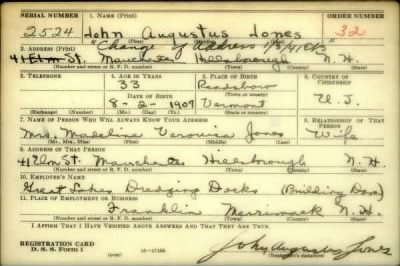 SERIAL NUMBER
1. NAME (Print)
ORDER NUMBER
2524
John Augustus Jones
32
(First) (Middle) (Last)
"Change of Address
2. ADDRESS (Print)
41 Elm St. Manchester Hillsborough N. H.
(Number and street or R. F. D. number) (Town) (County) (State)
3. TELEPHONE
4. AGE IN YEARS
33
5. PLACE OF BIRTH
Readsboro
(Town or county)
6. COUNTRY OF CITIZENSHIP
DATE OF BIRTH
8-2-1907
Vermont
U.S.
(Exchange) (Number)
(Mo.) (Day) (Yr.)
(State or country)
7. NAME OF PERSON WHO WILL ALWAYS KNOW YOUR ADDRESS
8. RELATIONSHIP OF THAT PERSON
Mrs. Madeline Veronica Jones
Wife
(Mr., Mrs., Miss) (First) (Middle) (Last)
9. ADDRESS OF THAT PERSON
41 Elm St. Manchester Hillsborough N. H.
(Number and street or R. F. D. number) (Town) (County) (State)
10. EMPLOYER'S NAME
Great Lakes Dredging Docks (Building Dam)
11. PLACE OF EMPLOYMENT OR BUSINESS
Franklin Merrimack N. H.
(Number and street or R. F. D. number) (Town) (County) (State)
I AFFIRM THAT I HAVE VERIFIED ABOVE ANSWERS AND THAT THEY ARE TRUE.
REGISTRATION CARD
D. S. S. FORM 1
(over)
John Augustus Jones
(Registrant's signature)